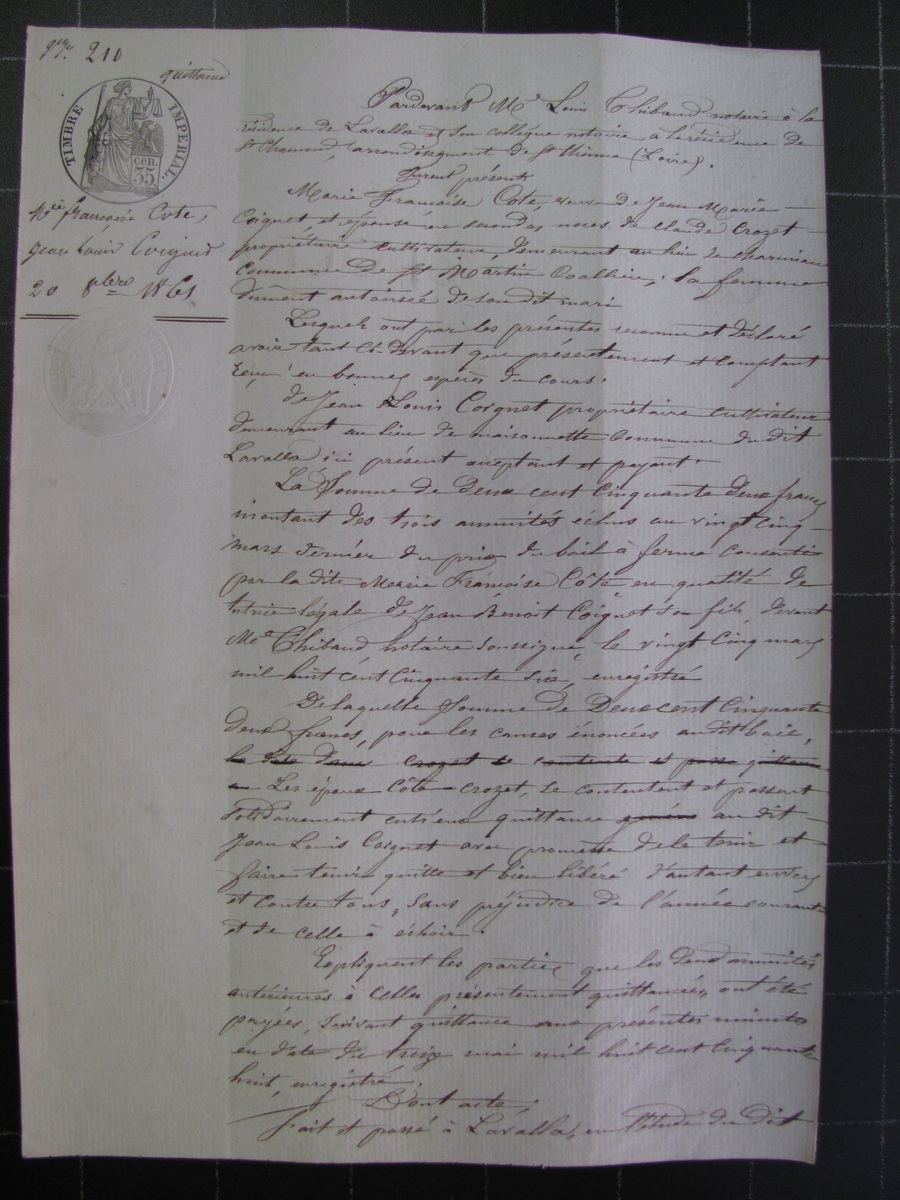 210
quittance
TIMBRE IMPERIAL
cen.
35.
Mie françoise Cote,
Jean Louis Coignet
20 8bre 1861
Pardevant Me Louis Thibaud notaire à la
résidence de Lavalla et son collègue notaire à la résidence de
St Chamond, arrondissement de St Etienne (Loire).
Furent présents
Marie Françoise Cote, veuve de Jean Marie
Coignet et épouse en secondes noces de Claude Crozet
propriétaire cultivateur, demeurant au lieu de
Commune de St Martin Coallieu, la femme
dument autorisée de son dit mari
Lesquels ont par les présentes reconnu et déclaré
avoir tant ci-devant que présentement et comptant
reçu en bonnes espèces du cours.
de Jean Louis Coignet propriétaire cultivateur
demeurant au lieu de maisonnette commune du dit
Lavalla ici présent acceptant et payant.
La Somme de deux cent cinquante deux francs
montant des trois annuités échus au vingt cinq
mars dernier du prix du bail à ferme consenti
par la dite Marie Françoise Côte en qualité de
tutrice légale de Jean Benoit Coignet son fils devant
Me Thibaud notaire soussigné, le vingt cinq mars
mil huit cent cinquante six, enregistré
De laquelle somme de Deux cent cinquante
deux francs, pour les causes énoncées au dit bail,
crozet se contente et passe quittance
Les époux Côte Crozet, se contentent et passent
solidairement entr'eux quittance au dit
Jean Louis Coignet avec promesse de le tenir et
faire tenir quitte et bien libéré d'autant envers
et contre tous, sans préjudice de l'année courante
et de celle à échoir.
Expliquent les parties que les deux annuités
antérieures à celles présentement quittancées, ont été
payées, suivant quittance aux présentes minutes
en date du treize mai mil huit cent cinquante
huit, enregistré.
Dont acte,
Fait et passé à Lavalla, en l'étude du dit